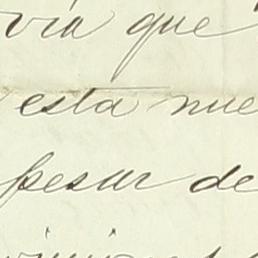 via que
esta nue
pesar de